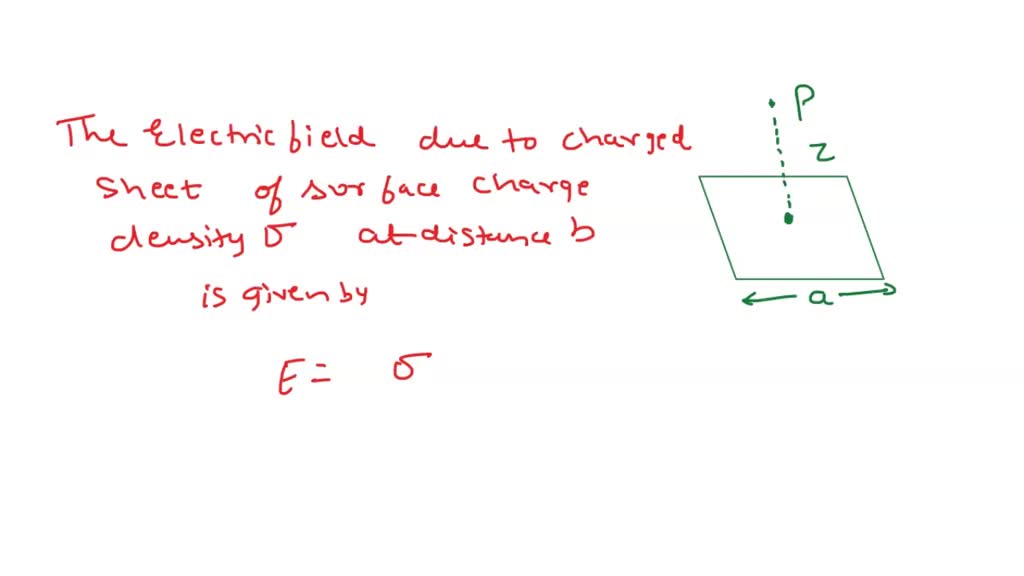 The Electric field due to charged
sheet of surface charge
density σ at distance b
is given by
E = σ
P
z
a